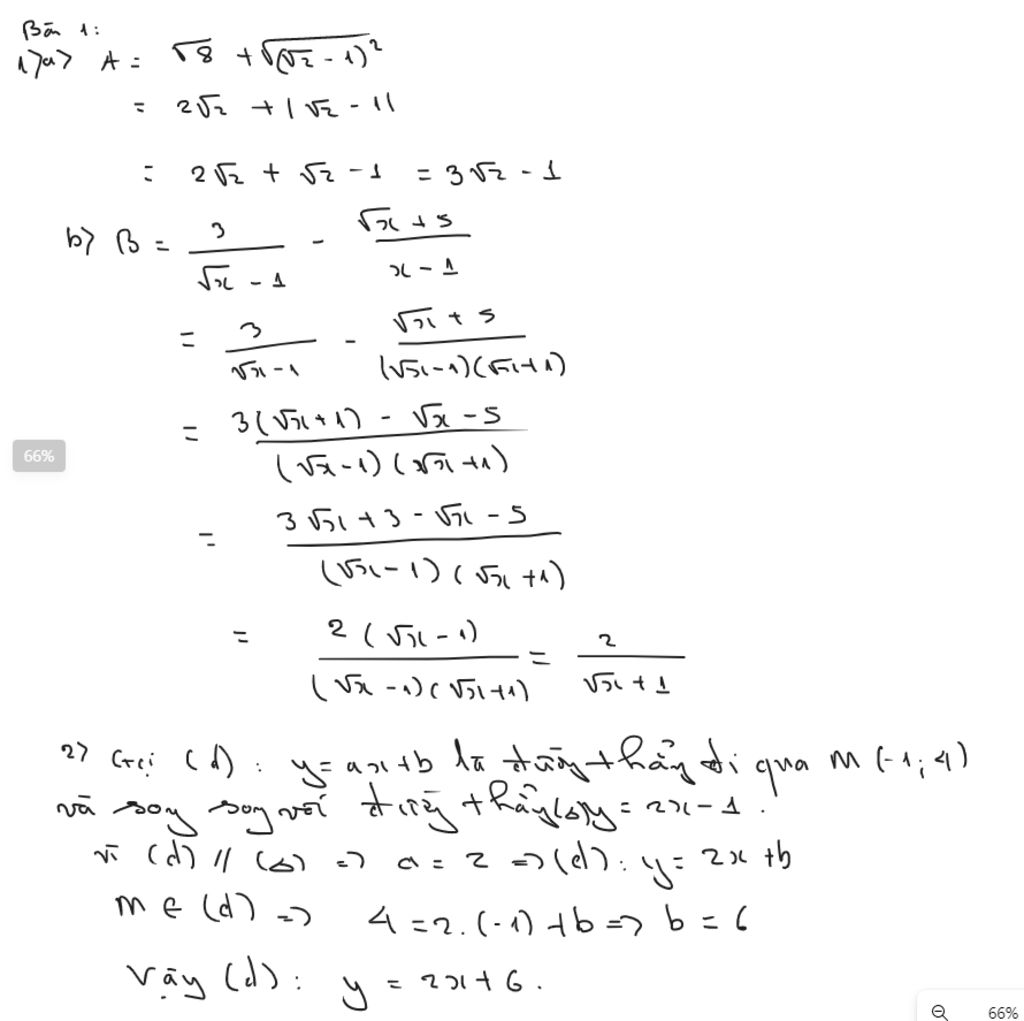 Bài 1:
1) a) A = √8 + √(√2 - 1)²
= 2√2 + |√2 - 1|
= 2√2 + √2 - 1 = 3√2 - 1
b) B = 3/(√x - 1) - (√x + 5)/(x - 1)
= 3/(√x - 1) - (√x + 5)/((√x - 1)(√x + 1))
= (3(√x + 1) - √x - 5)/((√x - 1)(√x + 1))
66%
= (3√x + 3 - √x - 5)/((√x - 1)(√x + 1))
= 2(√x - 1)/((√x - 1)(√x + 1)) = 2/(√x + 1)
2) Gọi (d): y = ax + b là đường thẳng đi qua M (-1; 4)
và song song với đường thẳng (Δ) y = 2x - 1.
Vì (d) // (Δ) => a = 2 => (d): y = 2x + b
M ∈ (d) => 4 = 2.(-1) + b => b = 6
Vậy (d): y = 2x + 6.
66%